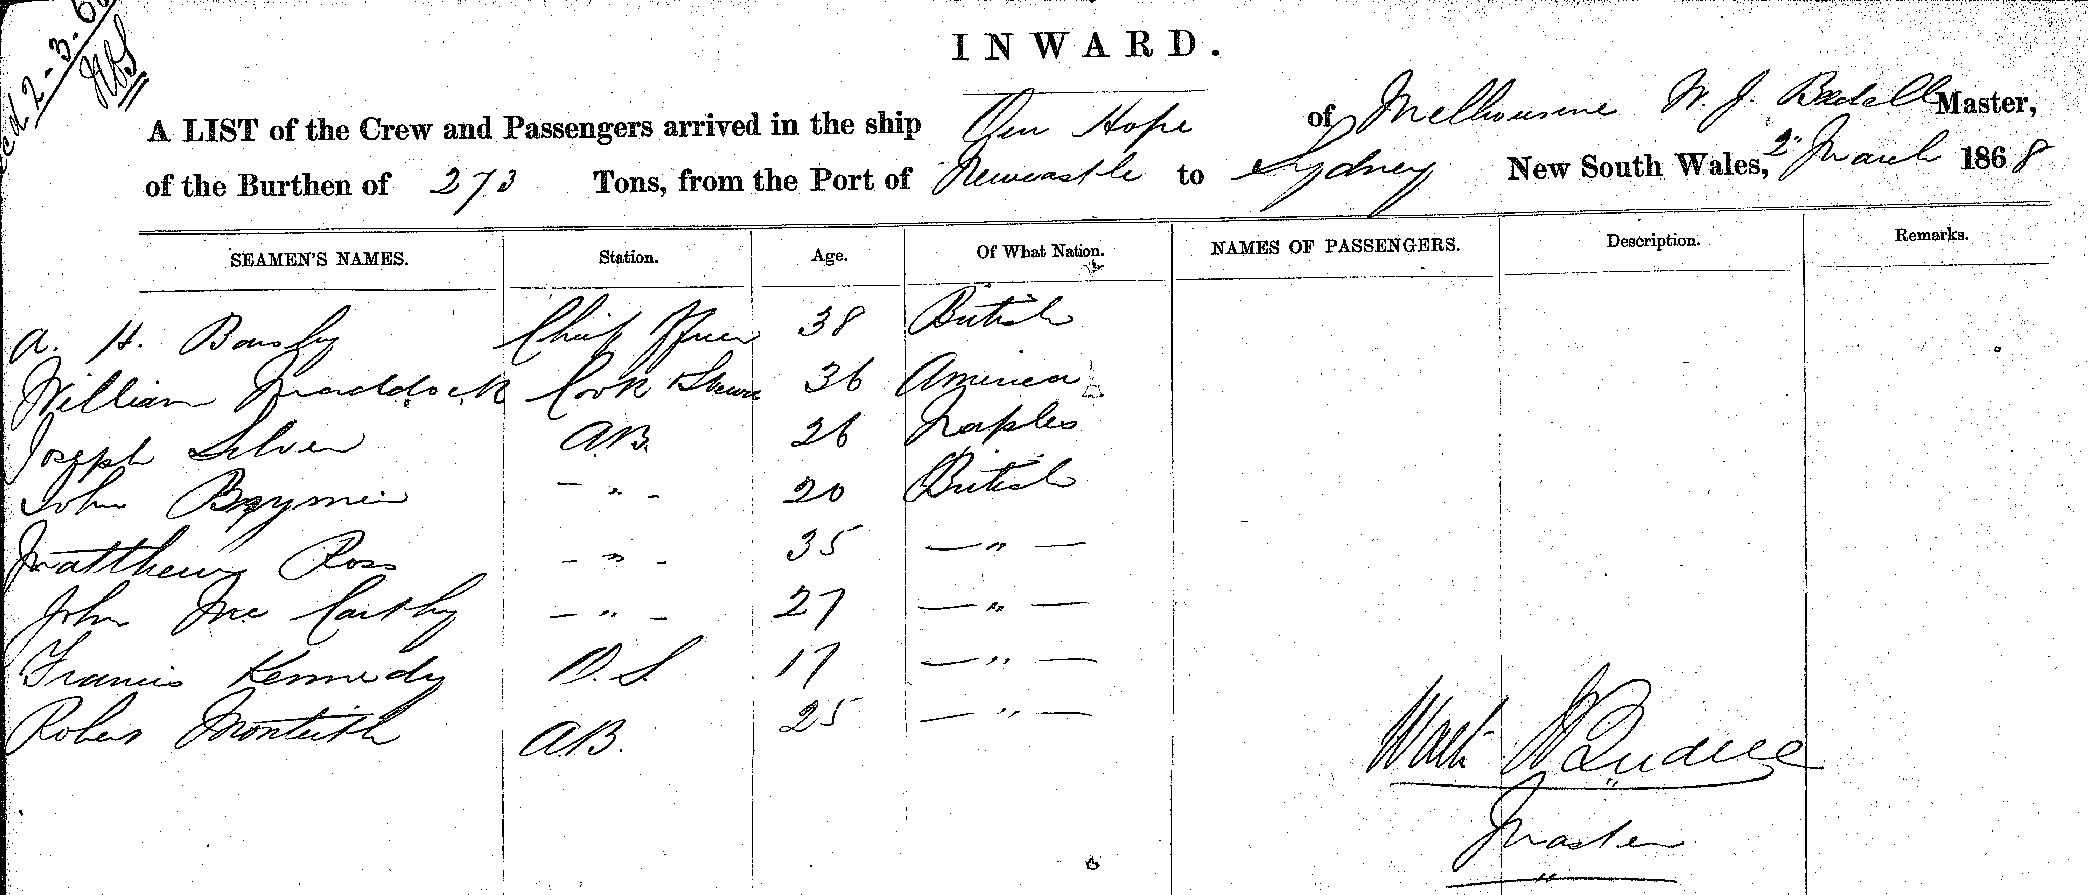 2-3-6
INWARD.
A LIST of the Crew and Passengers arrived in the ship Hope of Melbourne W. J. Master,
of the Burthen of 273 Tons, from the Port of Newcastle to Sydney New South Wales, 2" March 1868
SEAMEN'S NAMES. Station. Age. Of What Nation. NAMES OF PASSENGERS. Description. Remarks.
A. H. Chief Officer 38 British
William Maddock Cook 36 America
Joseph Silver AB. 26 Naples
John - " - 20 British
Matthew Ross - " - 35 — " —
John Mc Carthy - " - 27 — " —
Francis Kennedy O. S. 17 — " —
Robert Monteith AB. 25 — " —
Master